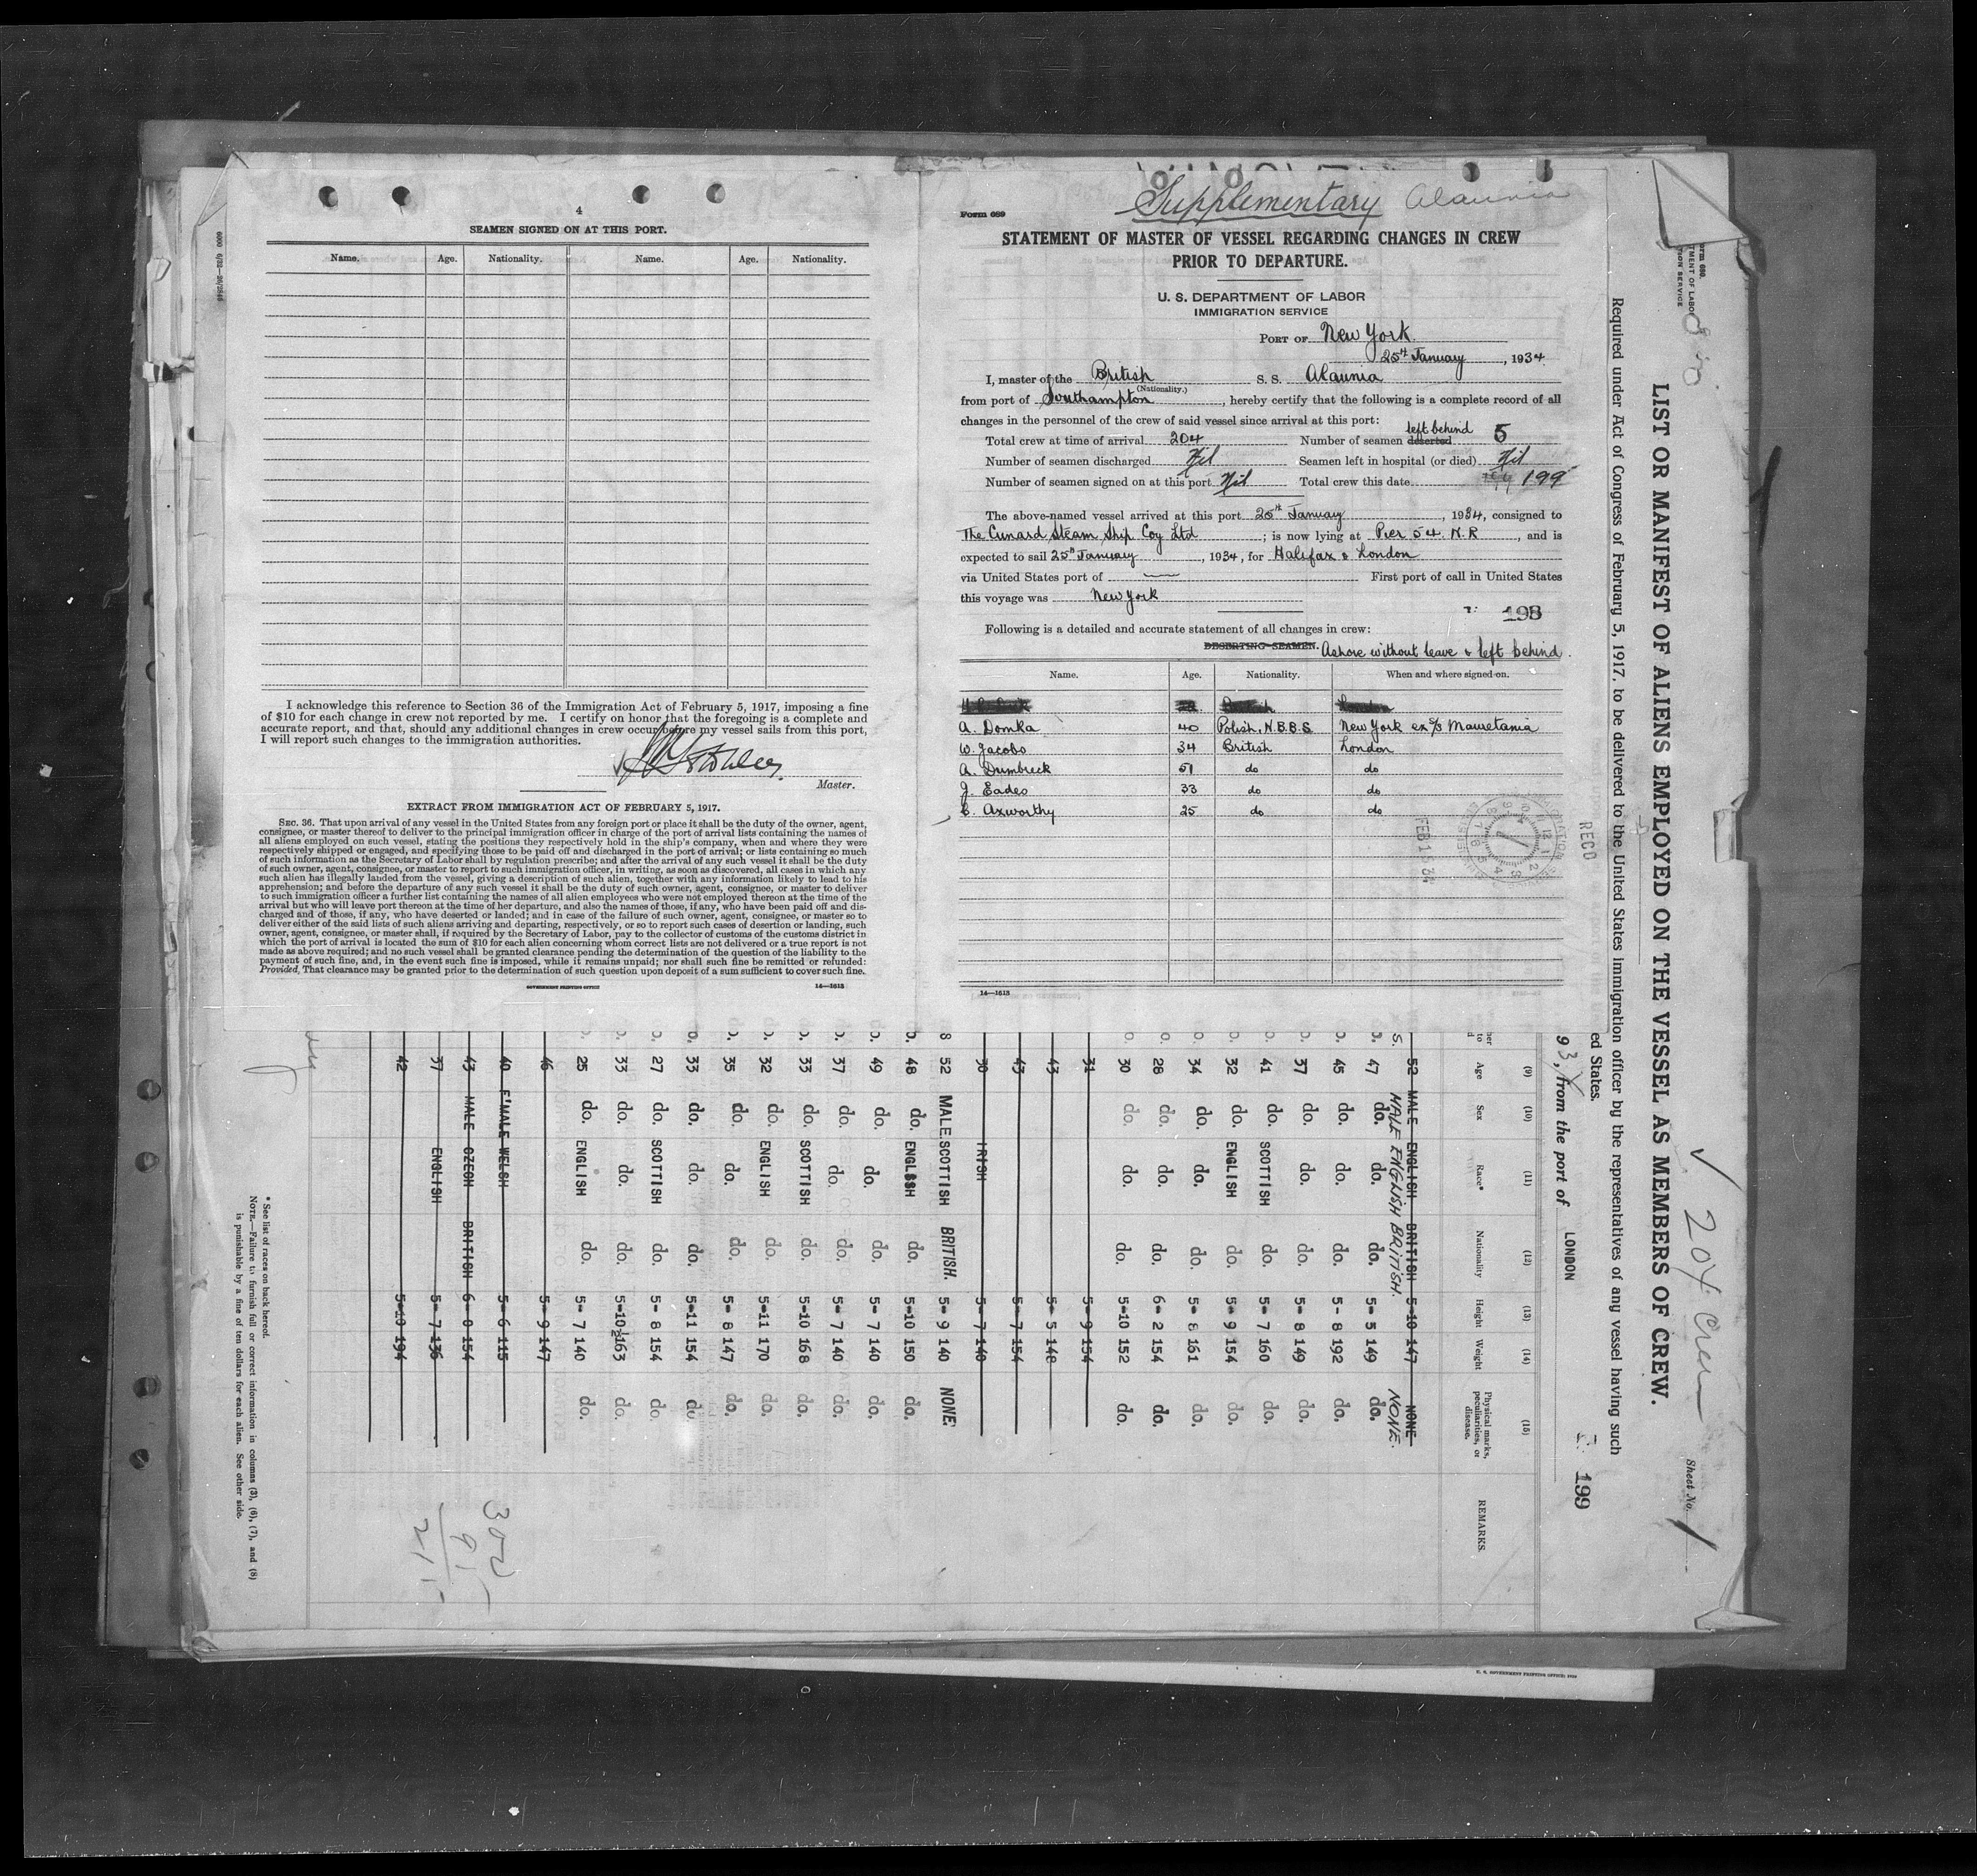 6000 6/32—26/2846
4
SEAMEN SIGNED ON AT THIS PORT.
Name. Age. Nationality. Name. Age. Nationality.
I acknowledge this reference to Section 36 of the Immigration Act of February 5, 1917, imposing a fine
of $10 for each change in crew not reported by me. I certify on honor that the foregoing is a complete and
accurate report, and that, should any additional changes in crew occur before my vessel sails from this port,
I will report such changes to the immigration authorities.
Master.
EXTRACT FROM IMMIGRATION ACT OF FEBRUARY 5, 1917.
SEC. 36. That upon arrival of any vessel in the United States from any foreign port or place it shall be the duty of the owner, agent,
consignee, or master thereof to deliver to the principal immigration officer in charge of the port of arrival lists containing the names of
all aliens employed on such vessel, stating the positions they respectively hold in the ship's company, when and where they were
respectively shipped or engaged, and specifying those to be paid off and discharged in the port of arrival; or lists containing so much
of such information as the Secretary of Labor shall by regulation prescribe; and after the arrival of any such vessel it shall be the duty
of such owner, agent, consignee, or master to report to such immigration officer, in writing, as soon as discovered, all cases in which any
such alien has illegally landed from the vessel, giving a description of such alien, together with any information likely to lead to his
apprehension; and before the departure of any such vessel it shall be the duty of such owner, agent, consignee, or master to deliver
to such immigration officer a further list containing the names of all alien employees who were not employed thereon at the time of the
arrival but who will leave port thereon at the time of her departure, and also the names of those, if any, who have been paid off and dis-
charged and of those, if any, who have deserted or landed; and in case of the failure of such owner, agent, consignee, or master so to
deliver either of the said lists of such aliens arriving and departing, respectively, or so to report such cases of desertion or landing, such
owner, agent, consignee, or master shall, if required by the Secretary of Labor, pay to the collector of customs of the customs district in
which the port of arrival is located the sum of $10 for each alien concerning whom correct lists are not delivered or a true report is not
made as above required; and no such vessel shall be granted clearance pending the determination of the question of the liability to the
payment of such fine, and, in the event such fine is imposed, while it remains unpaid; nor shall such fine be remitted or refunded:
Provided, That clearance may be granted prior to the determination of such question upon deposit of a sum sufficient to cover such fine.
GOVERNMENT PRINTING OFFICE 14—1613
Supplementary Alaunia
Form 689
STATEMENT OF MASTER OF VESSEL REGARDING CHANGES IN CREW
PRIOR TO DEPARTURE.
U. S. DEPARTMENT OF LABOR
IMMIGRATION SERVICE
PORT OF New York.
25th January, 1934.
I, master of the British S. S. Alaunia
(Nationality.)
from port of Southampton, hereby certify that the following is a complete record of all
changes in the personnel of the crew of said vessel since arrival at this port:
Total crew at time of arrival 204 Number of seamen deserted left behind 5
Number of seamen discharged Nil Seamen left in hospital (or died) Nil
Number of seamen signed on at this port Nil Total crew this date 199
The above-named vessel arrived at this port 25th January, 1934, consigned to
The Cunard Steam Ship Coy Ltd; is now lying at Pier 54. N.R, and is
expected to sail 25th January, 1934, for Halifax & London
via United States port of First port of call in United States
this voyage was New York
198
Following is a detailed and accurate statement of all changes in crew:
DESERTING SEAMEN. Ashore without leave & left behind.
Name. Age. Nationality. When and where signed on.
A. Domka 40 Polish. N.B.B.S. New York ex S/S Mauretania
W. Jacobs 34 British London
A. Dumbreck 51 do do
J. Eades 33 do do
E. Axworthy 25 do do
14—1613
FEB 1 5 34
RECD
LIST OR MANIFEST OF ALIENS EMPLOYED ON THE VESSEL AS MEMBERS OF CREW.
Required under Act of Congress of February 5, 1917, to be delivered to the United States immigration officer by the representatives of any vessel having such
ed States.
, from the port of LONDON
✓ 204 Crew
Sheet No. 1
199
(9) (10) (11) (12) (13) (14) (15)
Age Sex Race* Nationality Height Weight Physical marks, peculiarities, or disease. REMARKS.
52 MALE ENGLISH BRITISH 5-10 147 NONE
S. MALE ENGLISH BRITISH. NONE.
47 do. do. do. 5- 5 149 do.
45 do. do. do. 5- 8 192 do.
37 do. do. do. 5- 8 149 do.
41 do. SCOTTISH do. 5- 7 160 do.
32 do. ENGLISH do. 5- 9 154 do.
34 do. do. do. 5- 8 161 do.
28 do. do. do. 6- 2 154 do.
30 do. do. do. 5-10 152 do.
31 5-9 154
43 5-5 148
43 5-7 154
30 IRISH 5-7 140
8 52 MALE. SCOTTISH BRITISH. 5- 9 140 NONE.
48 do. ENGLISH do. 5-10 150 do.
49 do. do. do. 5- 7 140 do.
37 do. do. do. 5- 7 140 do.
33 do. SCOTTISH do. 5-10 168 do.
32 do. ENGLISH do. 5-11 170 do.
35 do. do. do. 5- 8 147 do.
33 do. do. do. 5-11 154 do.
27 do. SCOTTISH do. 5- 8 154 do.
33 do. do. do. 5-10½ 163 do.
25 do. ENGLISH do. 5- 7 140 do.
46 5-9 147
40 F'MALE WELSH 5-6 115
43 MALE CZECH BRITISH 6-0 154
37 ENGLISH 5-7 136
42 5-10 194
* See list of races on back hereof.
NOTE.—Failure to furnish full or correct information in columns (3), (6), (7), and (8)
is punishable by a fine of ten dollars for each alien. See other side.
U. S. GOVERNMENT PRINTING OFFICE: